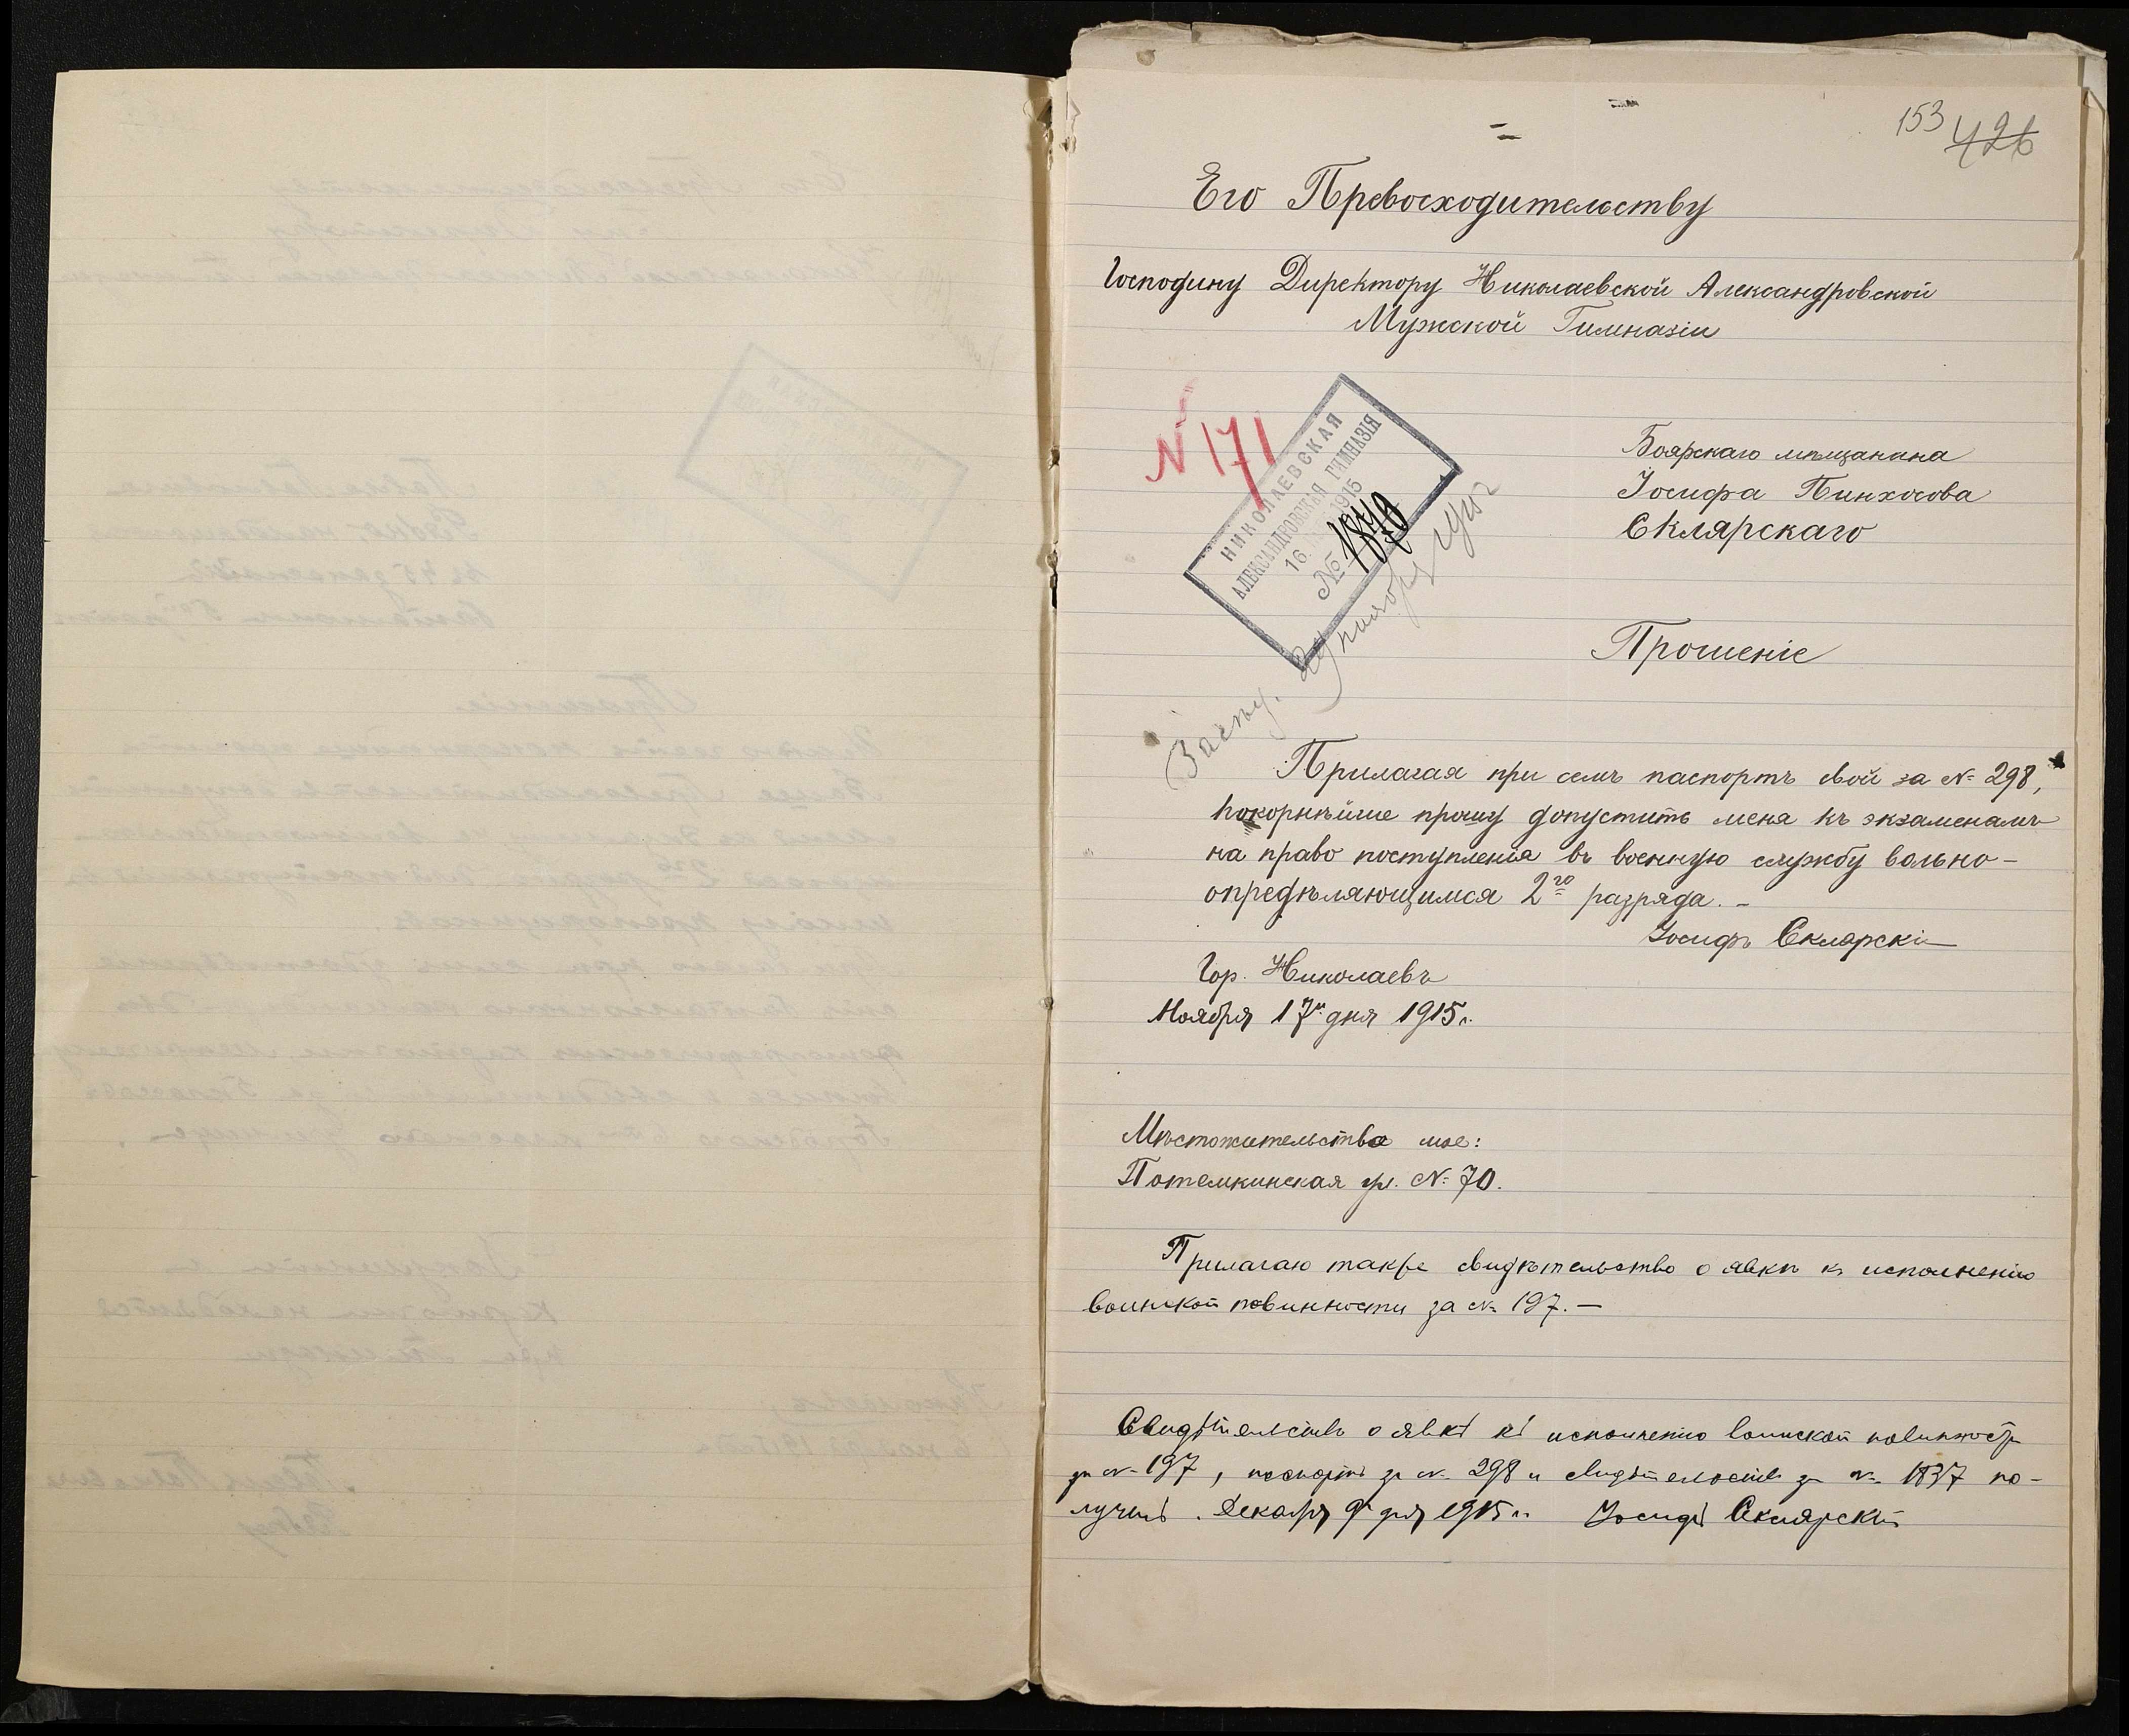 153 426
Его Превосходительству
Господину Директору Николаевской Александровской
Мужской Гимназіи
N 171
НИКОЛАЕВСКАЯ
АЛЕКСАНДРОВСКАЯ ГИМНАЗІЯ
16. 1915
№ 1870
Боярскаго мѣщанина
Іосифа Пинхосова
Склярскаго
Прошеніе
Прилагая при семъ паспортъ свой за № 298,
покорнѣйше прошу допустить меня къ экзаменамъ
на право поступленія въ военную службу вольно-
опредѣляющимся 2го разряда. -
Іосифъ Склярскій
Гор. Николаевъ
Ноября 17го дня 1915 г.
Мѣстожительство мое:
Потемкинская ул. № 70.
Прилагаю также свидѣтельство о явкѣ къ исполненію
воинской повинности за № 197. —
Свидѣтельство о явкѣ къ исполненію воинской повинности
за № 197, паспортъ за № 298 и свидѣтельство за № 1837 по-
лучилъ. Декабря 9го дня 1915 г. Іосифъ Склярскій